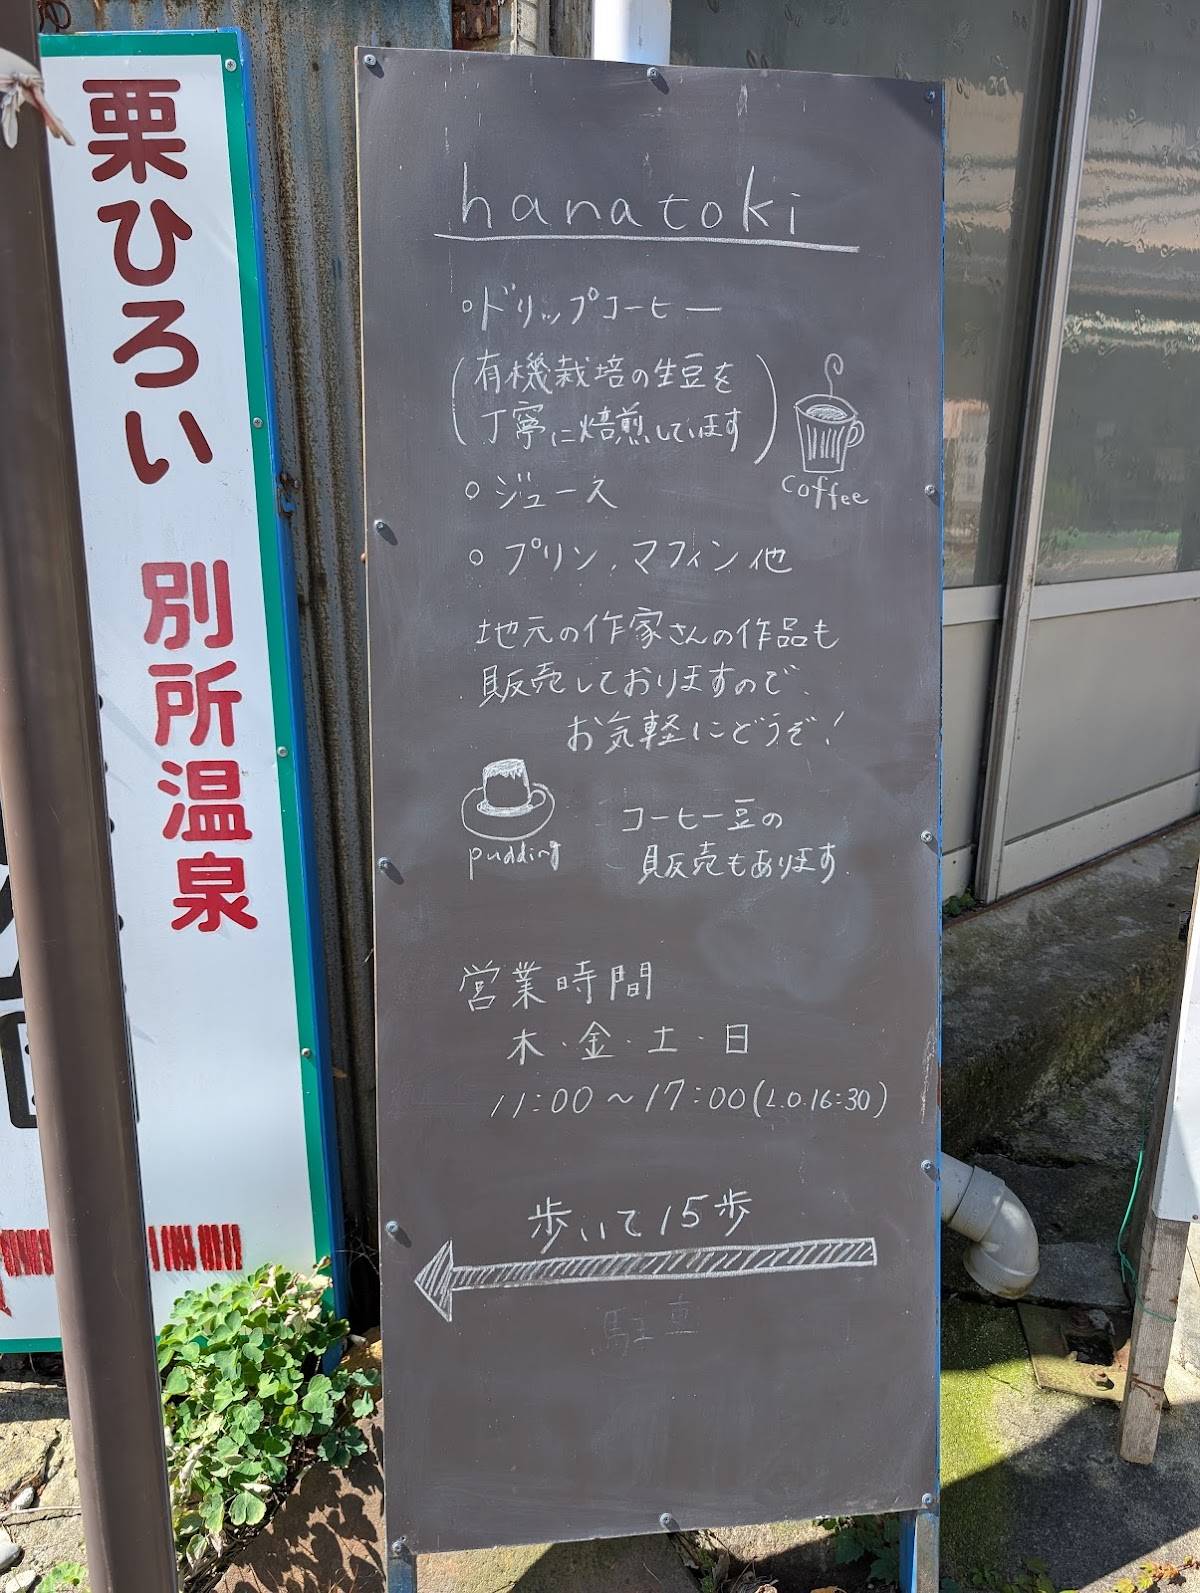 栗ひろい 別所温泉
hanatoki
○ドリップコーヒー
(有機栽培の生豆を
丁寧に焙煎しています)
coffee
○ジュース
○プリン、マフィン他
地元の作家さんの作品も
販売しておりますので、
お気軽にどうぞ!
pudding
コーヒー豆の
販売もあります.
営業時間
木・金・土・日
11:00〜17:00(L.O.16:30)
歩いて15歩